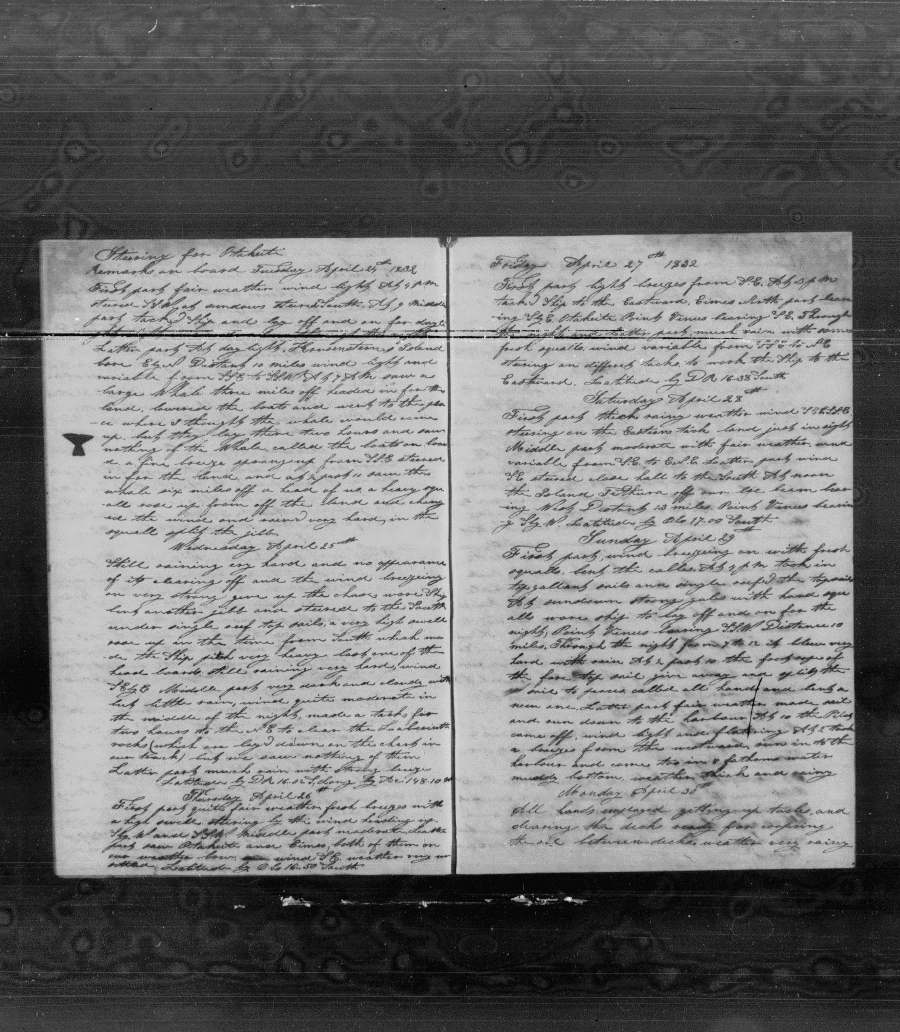 Steering for Otaheite
Remarks on board Tuesday April 24th 1832
First part fair weather wind light At 4 PM
stered SSW at sundown stered South. At 9 Middle
part tacked Ship and lay off and on for day
Latter part At day light, Island
bore EbyN Distant 10 miles wind light and
variable from to SSW At 7 AM saw a
large Whale three miles off headed in for the
land, lowered the boats and went to the pla
-ce where I thought the whale would come
up, but they lay there two hours and saw
nothing of the Whale, called the boats on boar
d a fine breeze sprang up from SSE steered
in for the land, and at past 11 saw the
whale six miles off a head of us a heavy squ
all rose up from off the land and chang
ed the wind and rained very hard, in the
squall split the jibb
Wednesday April 25th
Still raining very hard and no appearance
of its clearing off and the wind breezing
on very strong gave up the chase, wore Ship
bent another jibb and steered to the South
under single reef top sails, a very high swell
rose up in the time from South which ma
-de the Ship pitch very heavy lost one of the
head boards still raining very hard, wind
SEbyE Middle part very dark and cloudy with
but little rain, wind quite moderate in
the middle of the night, made a tack for
two hours to the NE to clear the
rock (which are lay'd down on the chart in
our track) but we saw nothing of them
Latter part much rain with strong breeze
Latitude by DR 16.02 S Long by Do 148.10 W
Thursday April 26th
First part quite fair weather fresh breezes with
a high swell steering by the wind heading up
SbyW and SSW Middle part moderate Latter
part saw Otaheite and Eimeo, both of them on
our weather bow, wind SE weather very
Latitude by Obs 16.50 South
Friday April 27th 1832
First part light breezes from SE, At PM
tackd Ship to the Eastward, Eimeo North part bear
-ing SbyE Otaheite Point Venus bearing SE, Through
the night and latter part much rain with some
fresh squalls wind variable from SSE to SE
steering on different tacks to work the Ship to the
Eastward, Latitude by DR 16.38 South
Saturday April 28th
First part thick rainy weather wind
steering on the Eastern tack land just in sight
Middle part moderate with fair weather, wind
variable from SE to ENE Latter part wind
SE steered close hall to the South At noon
the Island Tethura off our lee beam bear
ing West Distant 12 miles Point Venus bearin
g SbyW. Latitude by Obs 17.00 South
Sunday April 29
First part, wind breezing on with fresh
squalls, bent the cables. At 4 PM took in
top gallant sails and single reefd the topsails
At sundown strong gales with head squ
alls wore ship to lay off and on for the
night, Point Venus bearing SSW Distance 10
miles, Through the night from 7 to 12 it blew very
hard with rain At past 10 the foot rope of
the fore top sail give away and split the
sail to pieces called all hands and bent a
new one, Latter part fair weather made sail
and run down to the harbour, At 10 the Pilot
came off, wind light and At 2 took
a breeze from the westward, run in to the
harbour and come too in 8 fathoms water
muddy bottom, weather thick and rainy
Monday April 30th
All hands employed getting up tacks, and
clearing the deck ready for coopering
the oil between decks, weather very rainy